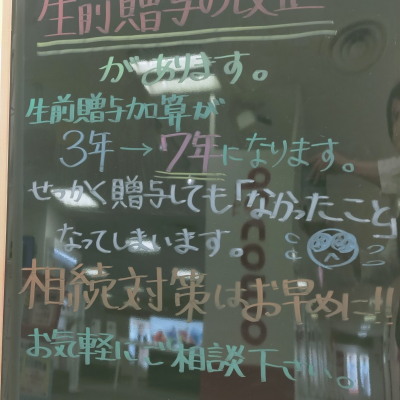 生前贈与の改正
があります。
生前贈与加算が
3年→7年になります。
せっかく贈与しても「なかったこと」
なってしまいます。
相続対策はお早めに!!
お気軽にご相談下さい。